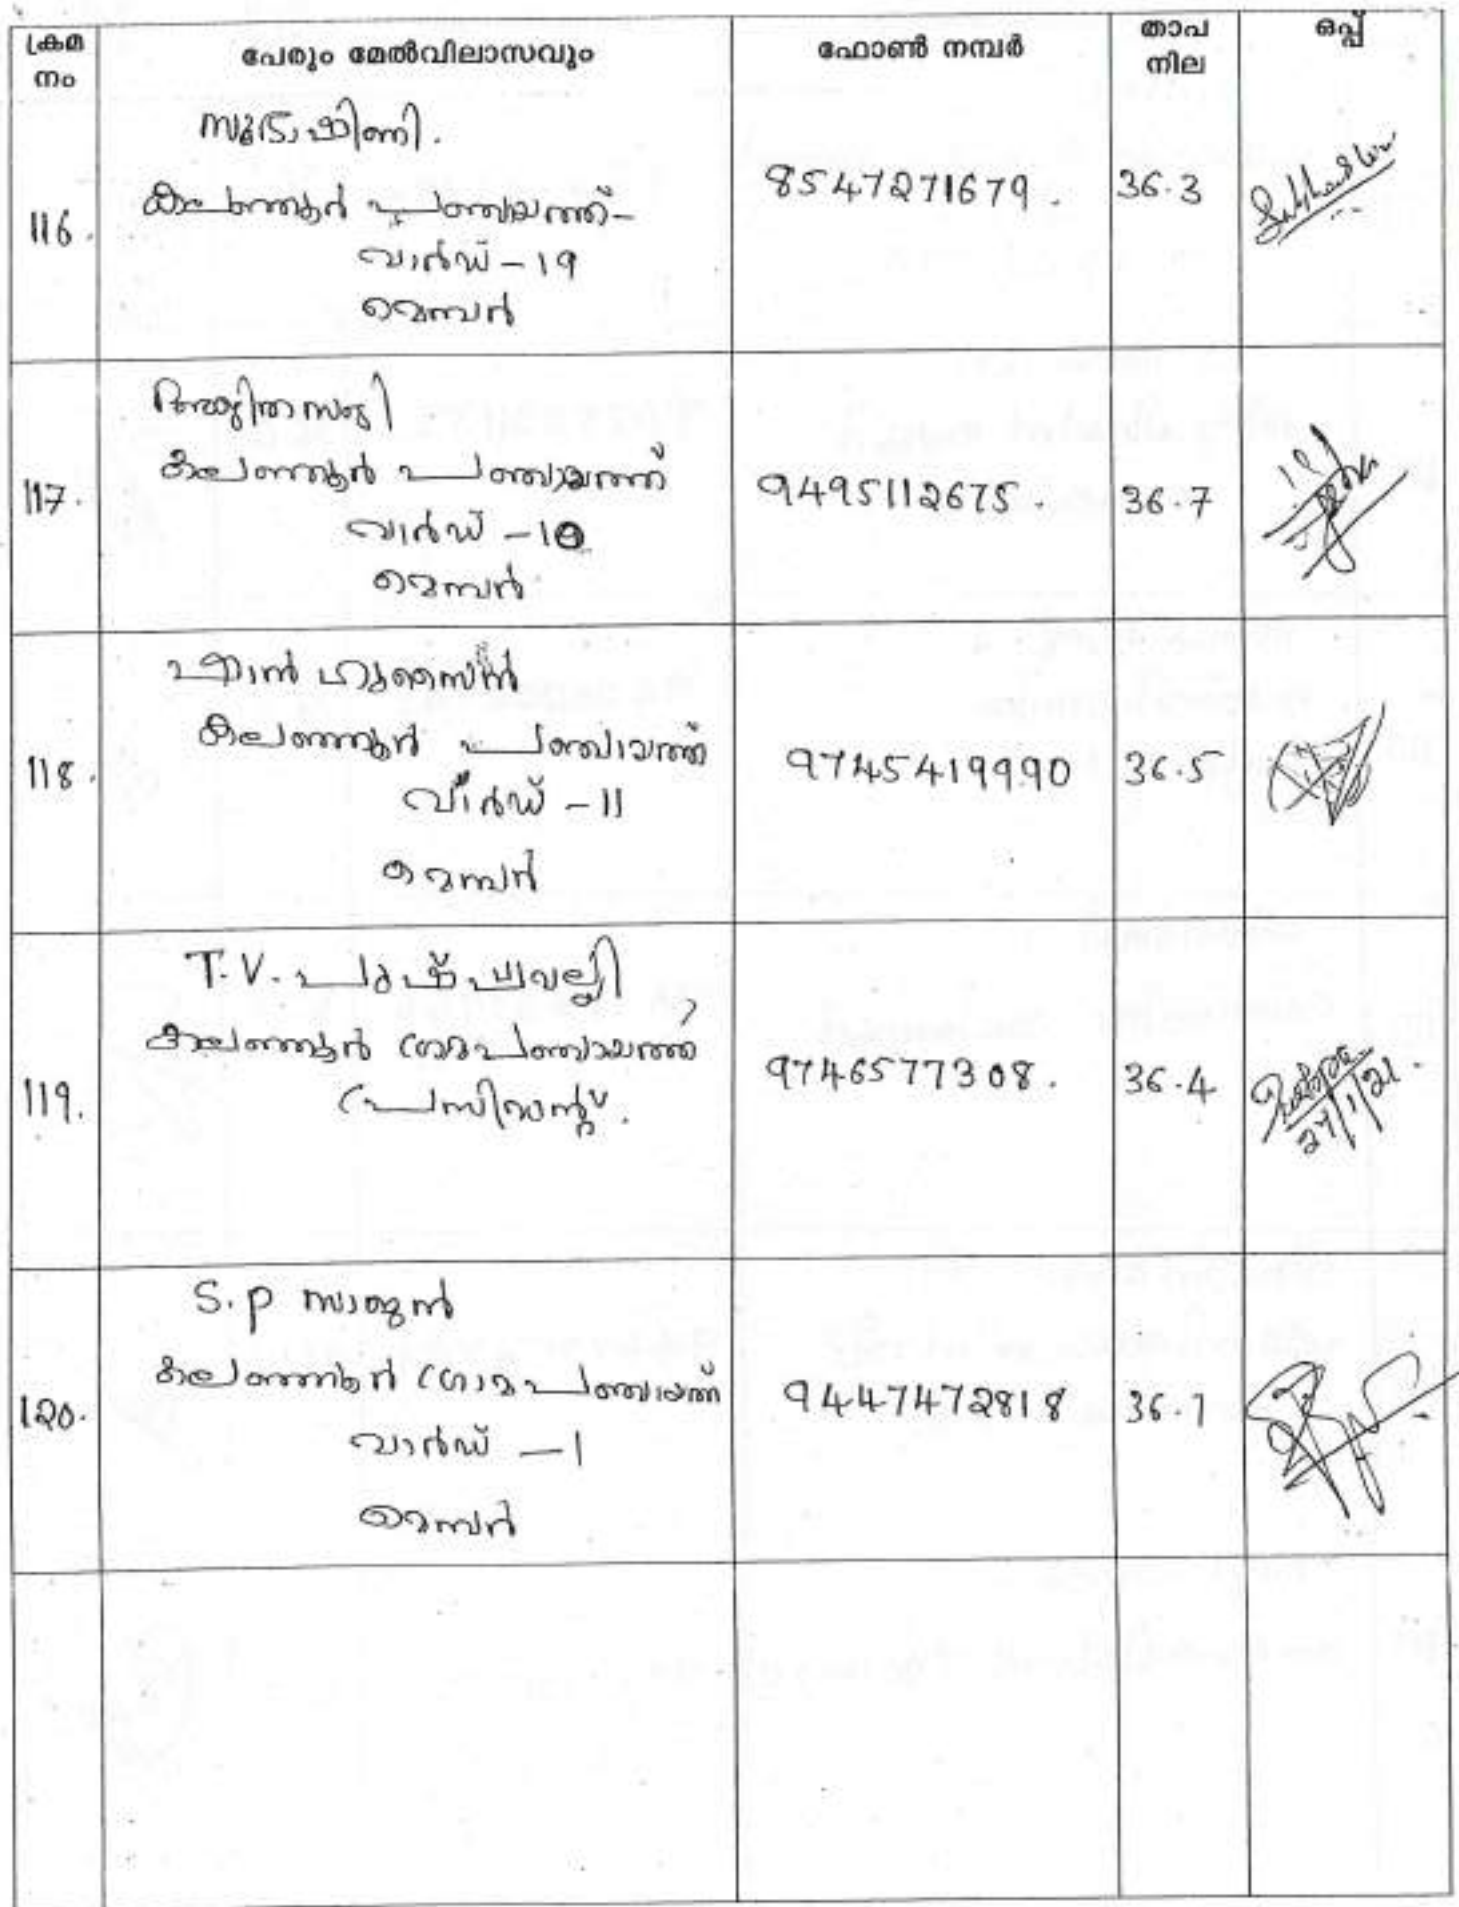 ക്രമ
നം
പേരും മേൽവിലാസവും
ഫോൺ നമ്പർ
താപ
നില
ഒപ്പ്
116.
സുഭാഷിണി.
കലഞ്ഞൂർ പഞ്ചായത്ത്-
വാർഡ് - 19
മെമ്പർ
8547271679.
36.3
117.
കലഞ്ഞൂർ പഞ്ചായത്ത്
വാർഡ് - 10
മെമ്പർ
9495112675.
36.7
118.
ഷാൻ ഹുസൈൻ
കലഞ്ഞൂർ പഞ്ചായത്ത്
വാർഡ് - 11
മെമ്പർ
9745419990
36.5
119.
T.V. പുഷ്പവല്ലി
കലഞ്ഞൂർ ഗ്രാമപഞ്ചായത്ത്
പ്രസിഡന്റ്.
9746577308.
36.4
27/1/21.
120.
S.P സാജൻ
കലഞ്ഞൂർ ഗ്രാമപഞ്ചായത്ത്
വാർഡ് - 1
മെമ്പർ
9447472818
36.1